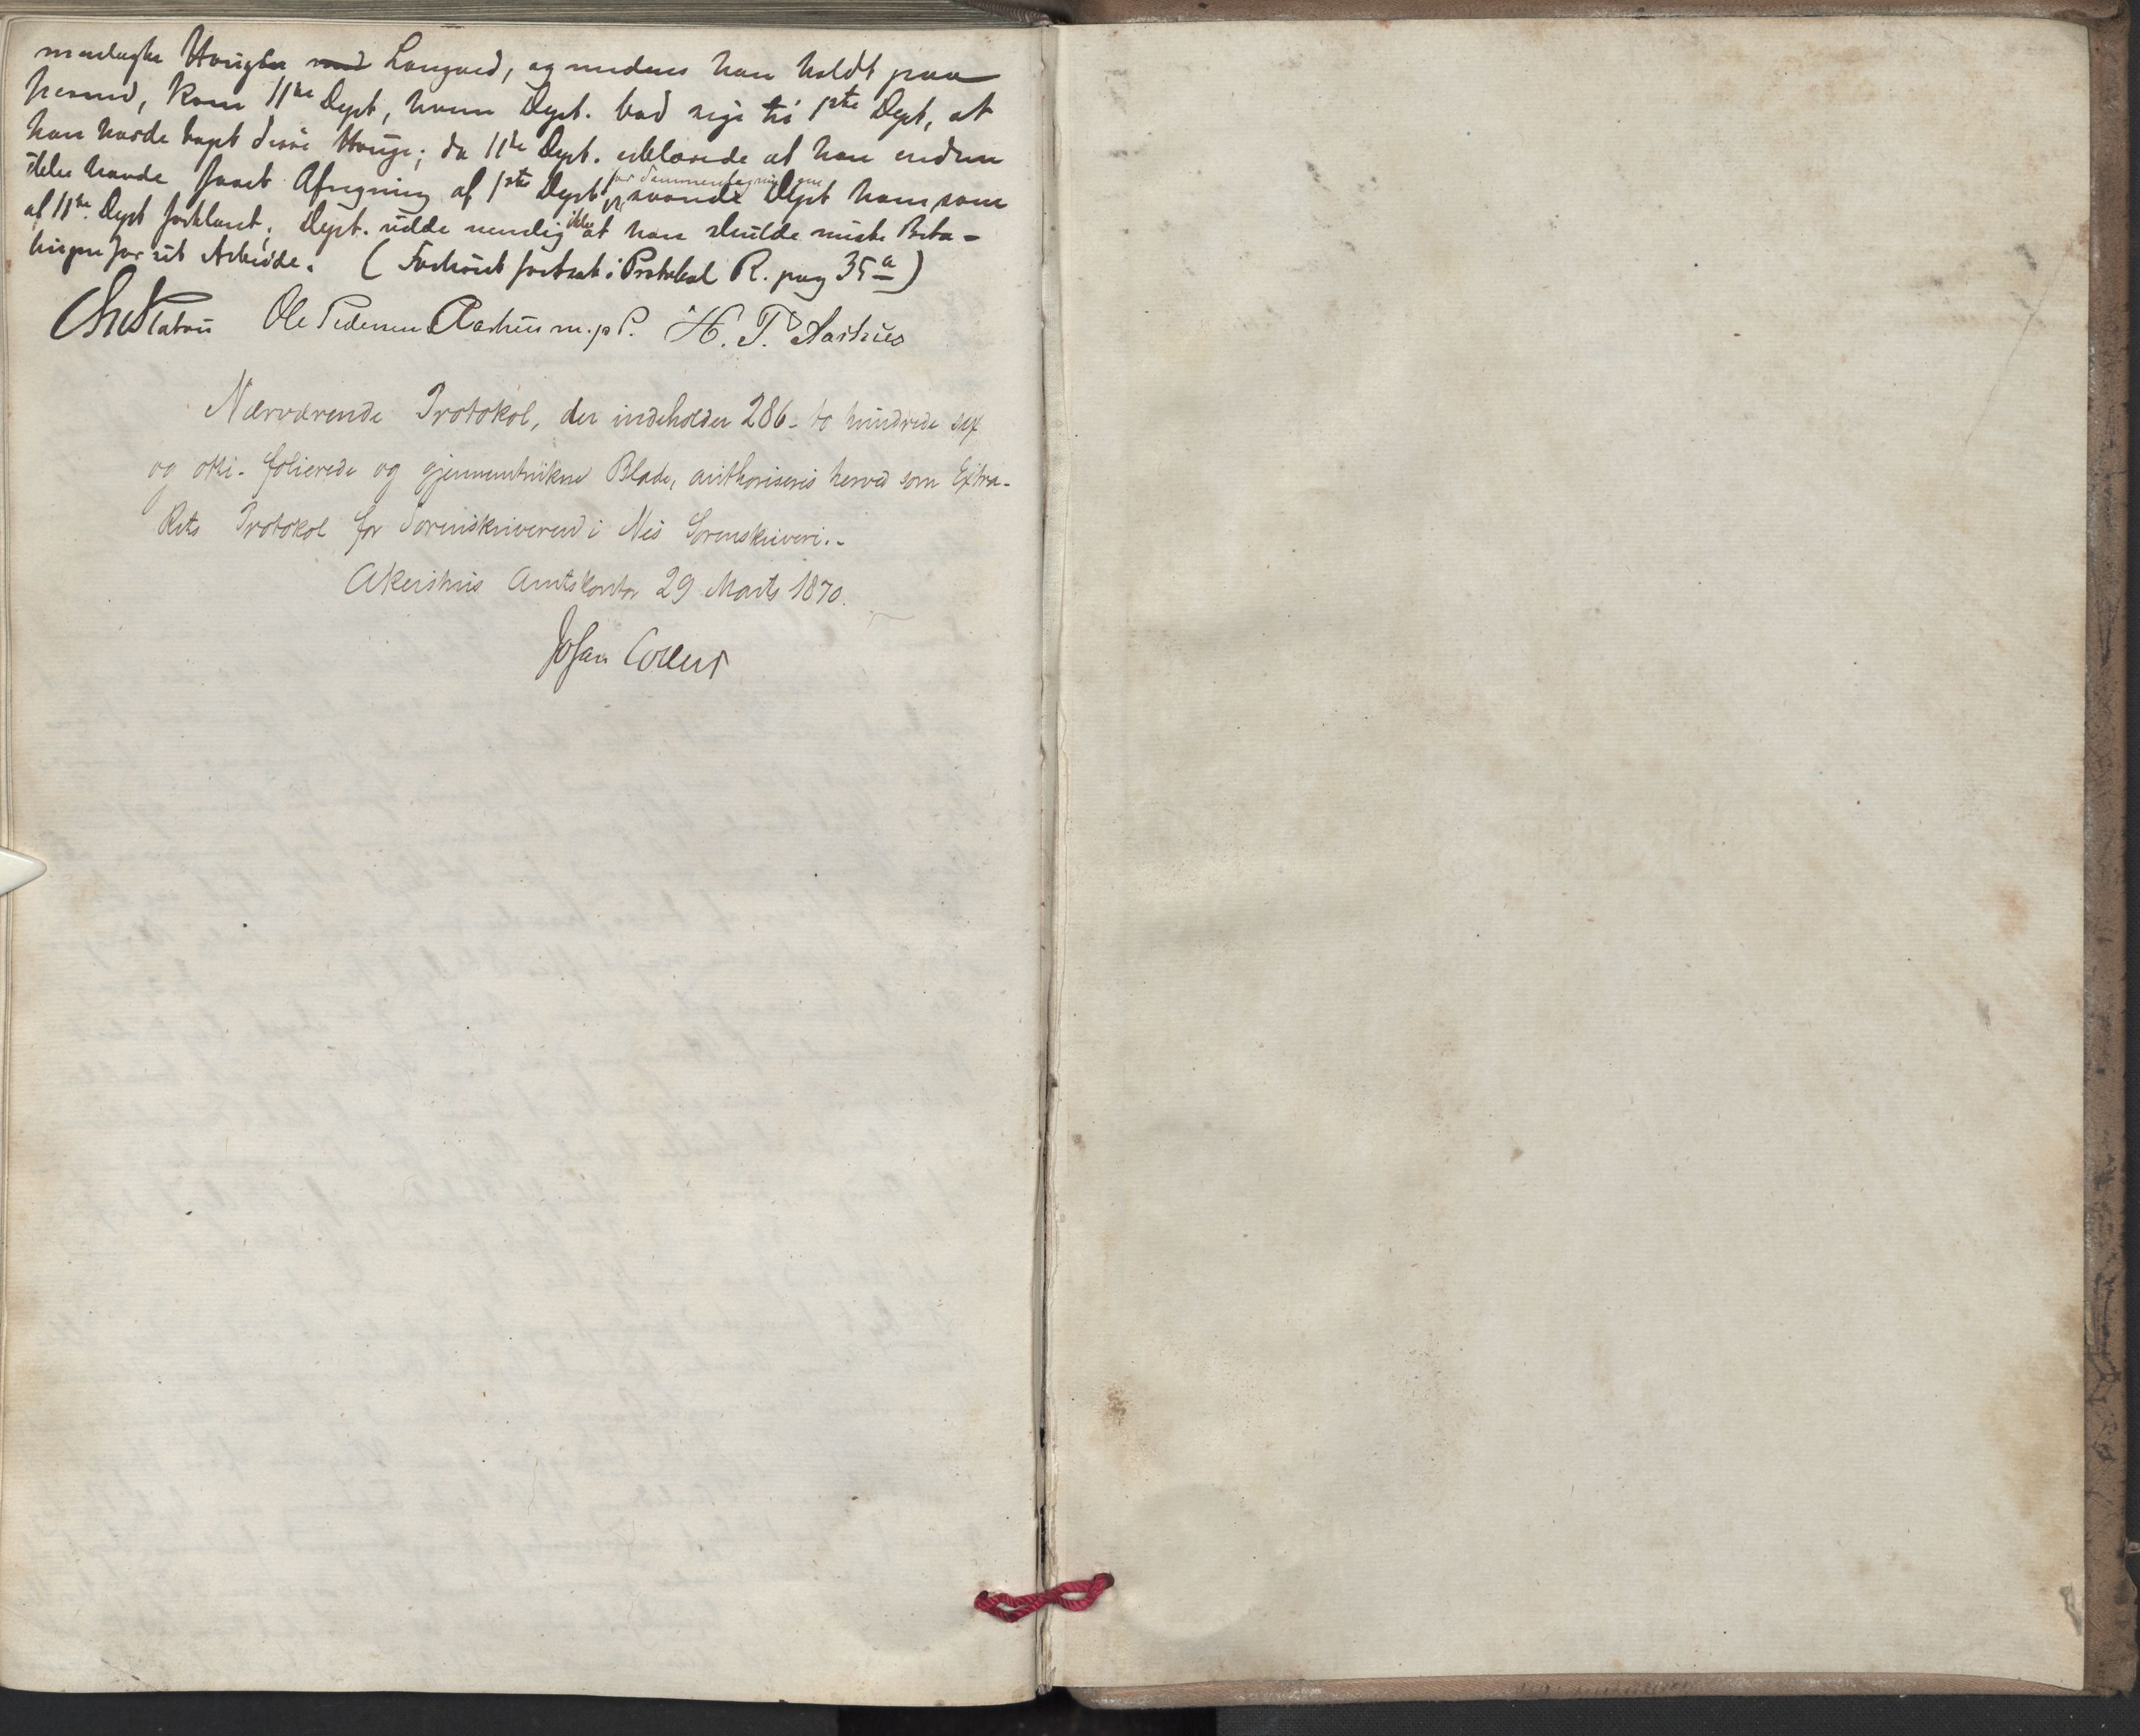 Haugen Langaard, og medens han holdt paa
hermed, kom 11te Dept, hvem Dept. bad sige til 1ste Dept, at
han havde kapt disse Hauge; da 11te Dept. erklærede at han endnu
ikke havde faaet Afregning af 1ste Dept for svarede Dept ham, som
af 11te Dept forklaret. Dept. vilde nemlig ikke at han skulde miste Beta-
lingen for sit Arbeide. (Forhøret fortsat i Protokol R. pag 35a)
Ole Pedersen Aarhuus m. p. P. H. P. Aarhues
Nærværende Protokol, der indeholder 286 - to hundrede sex
og otti - folierede og gjennemtrukne Blade, authoriseres herved som Extra-
Rets Protokol for Sorenskriveren i Nes Sorenskriveri. -
Akershus Amtskontor 29 Marts 1870.
Johan Collett